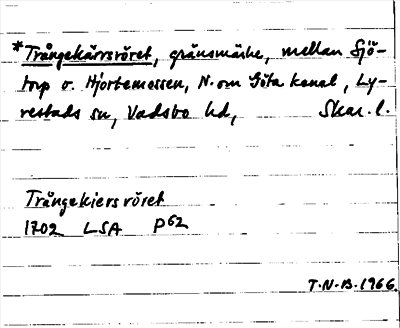 *Trångekärrsröret, gränsmärke, mellan Sjö-
torp o. Hjortemossen, N. om Göta kanal, Ly-
restads sn, Vadsbo hd, Skar. l.
Trångekiersröret
1702 LSA P62
T.N-B. 1966.